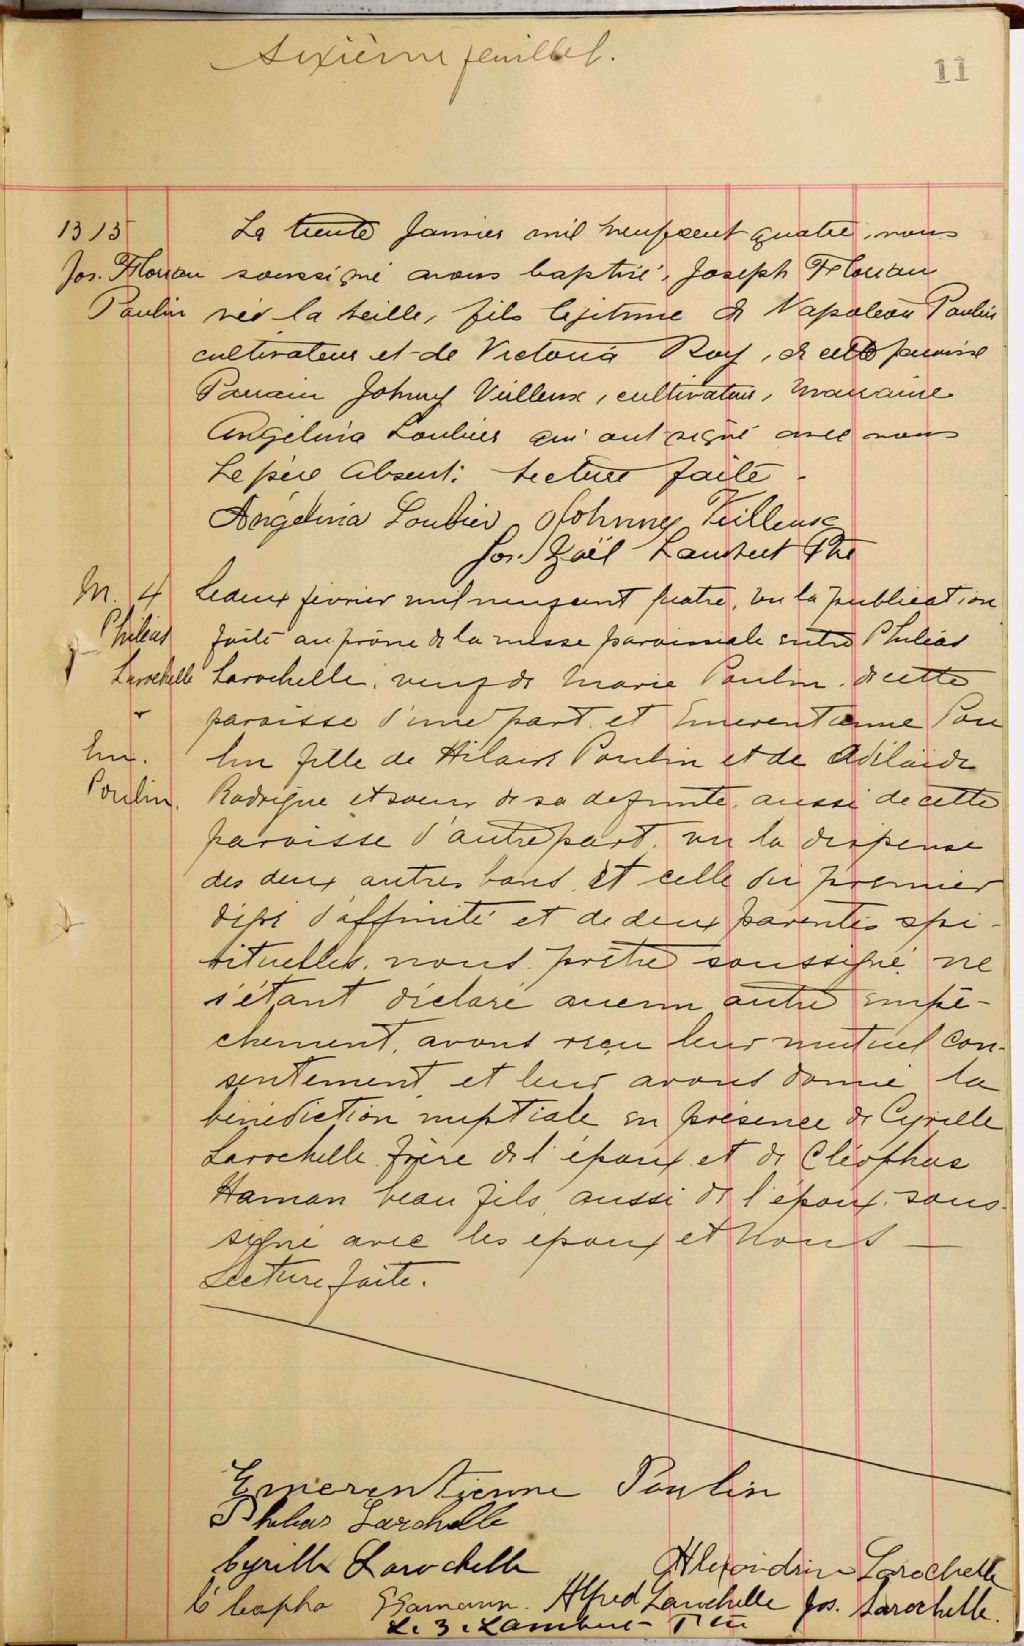 Sixième feuillet.
11
B 15
Jos. Florian
Poulin
Le trente Janvier mil neufcent quatre, nous
soussigné avons baptisé, Joseph Florian
né la veille, fils légitime de Napoléon Poulin
cultivateur et de Victoria Roy, de cette paroisse
Parrain Johnny Veilleux, cultivateur, marraine
Angélina Loubier qui ont signé avec nous
Le père absent. Lecture faite.
Angélina Loubier Johnny Veilleux
Jos. Zoël Lambert Ptre
M. 4
Philéas
Larochelle
+
Em.
Poulin.
Ledeux février milneufcent quatre, vu la publication
faite au prône de la messe paroissiale entre Philéas
Larochelle, veuf de Marie Poulin, de cette
paroisse d'une part, et Emerentienne Pou
lin fille de Hilaire Poulin et de Adélaïde
Rodrigue et soeur de sa defunte, aussi de cette
paroisse d'autre part, vu la dispense
des deux autres bans et celle du premier
degré d'affinité et de deux parentés spi-
rituelles, nous prêtre soussigné, ne
s'étant déclaré aucun autre empê-
chement, avons reçu leur mutuel con-
sentement et leur avons donné la
bénédiction nuptiale en présence de Cyrille
Larochelle frère de l'époux, et de Cléophas
Haman beau fils, aussi de l'époux, sous-
signé avec les époux et nous —
Lecture faite.
Emerentienne Poulin
Philias Larochelle
Cyrille Larochelle
Alexandrine Larochelle
Cleopha Hamann. Alfred Larochelle Jos. Larochelle.
J. Z. Lambert Ptre